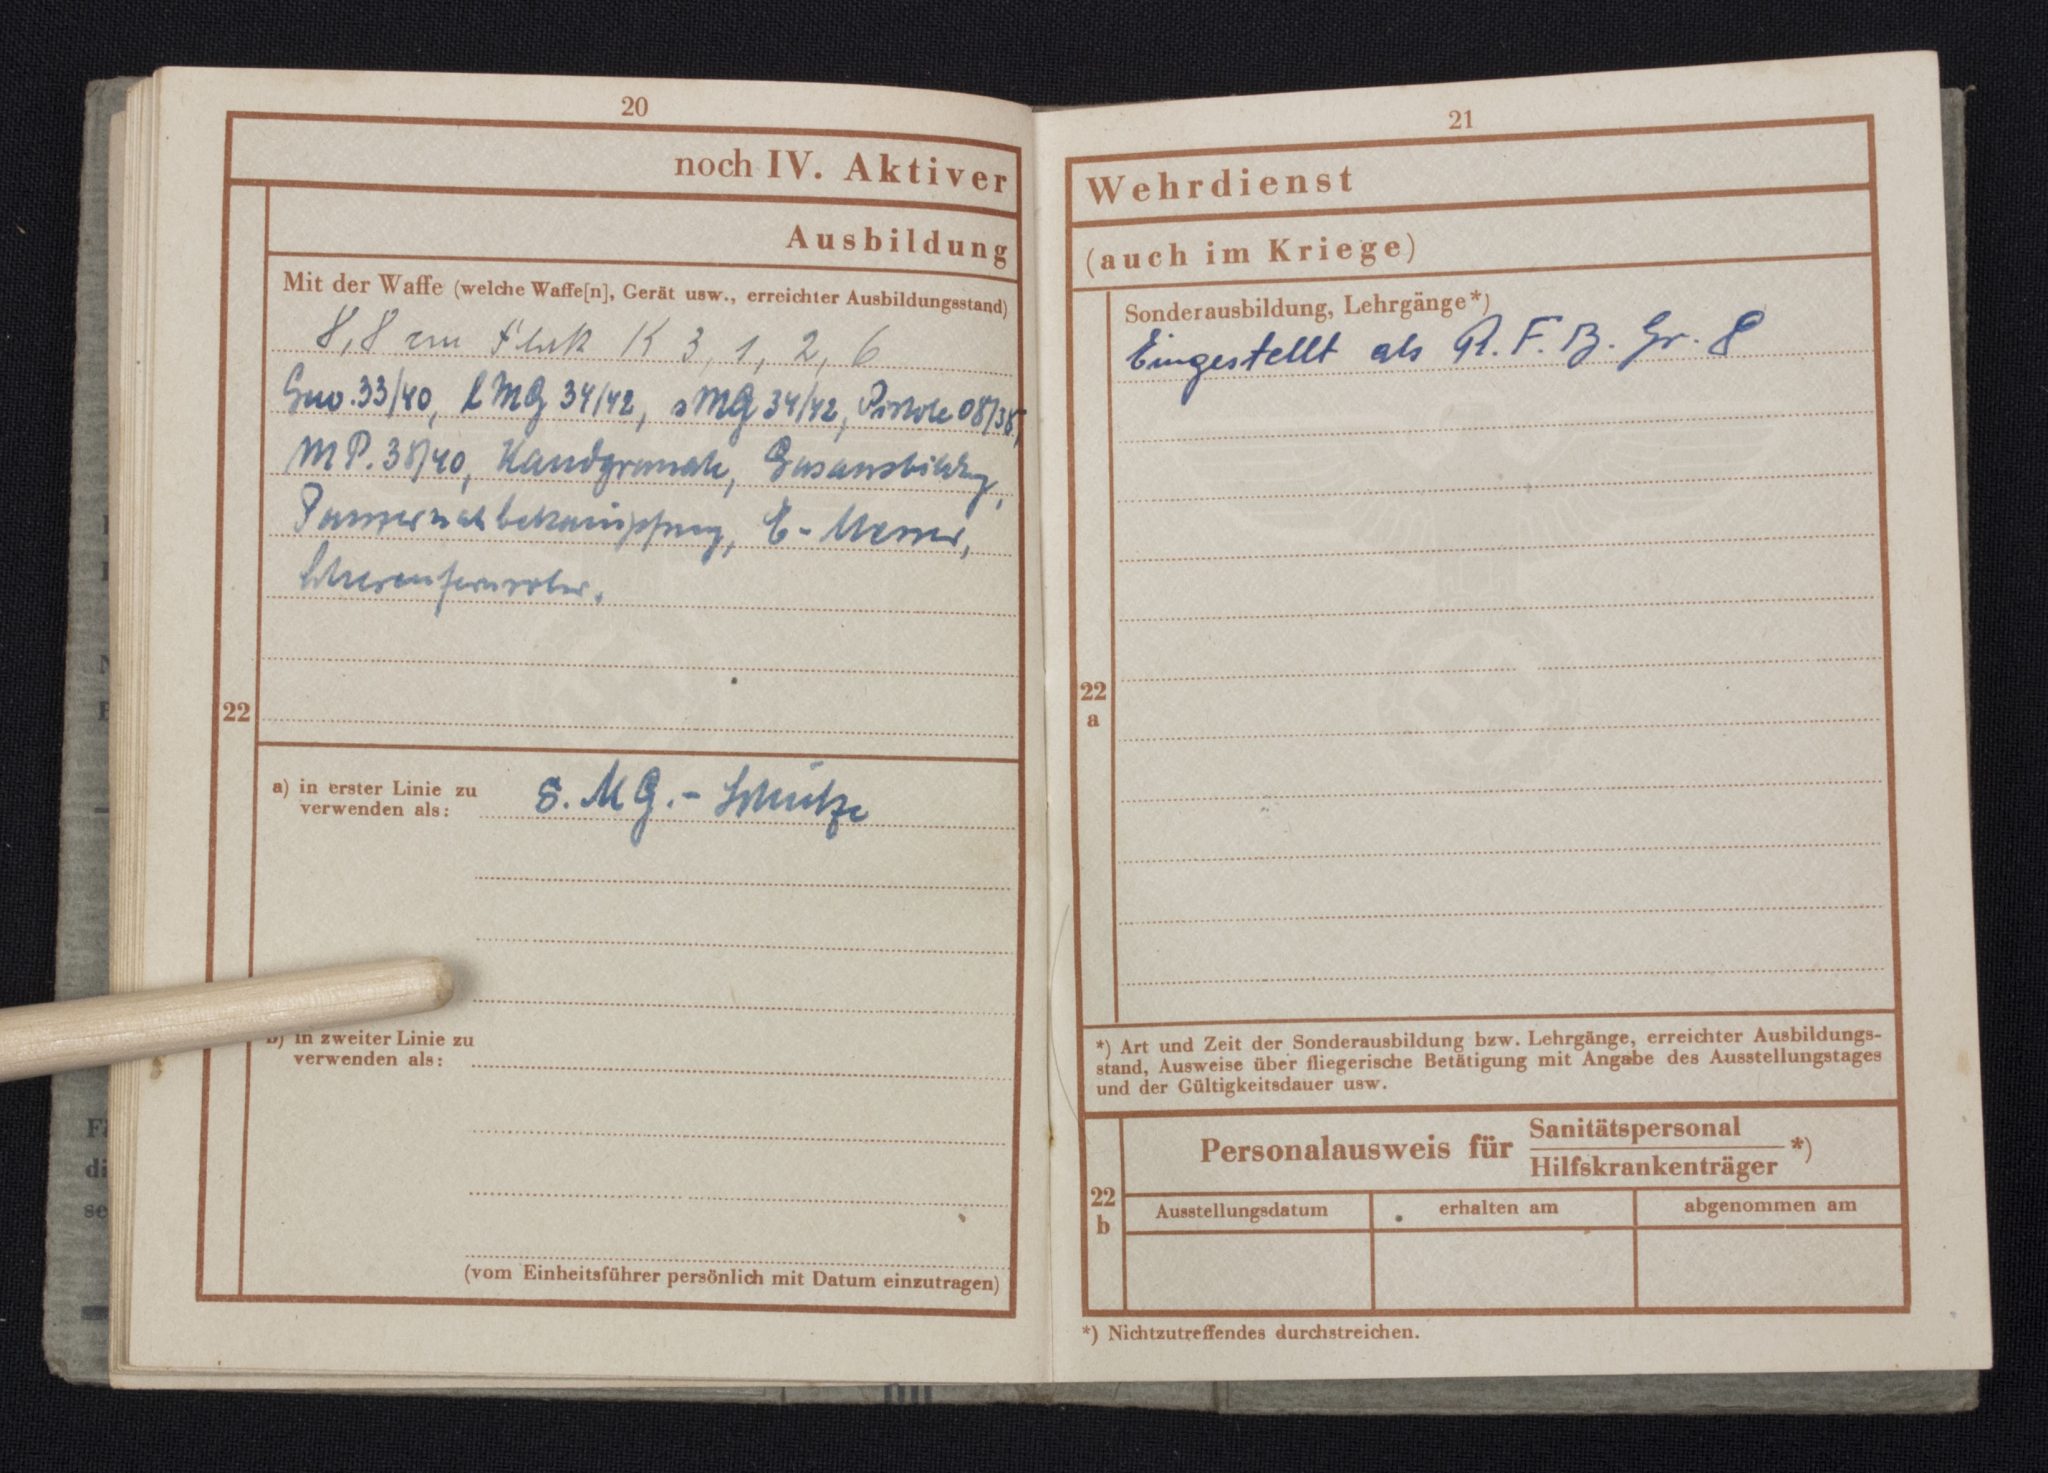 20
noch IV. Aktiver
Ausbildung
Mit der Waffe (welche Waffe[n], Gerät usw., erreichter Ausbildungsstand)
8,8 cm Flak K 3, 1, 2, 6
Gew. 33/40, l MG 34/42, s MG 34/42, Pistole 08/38,
MP. 38/40, Handgranate, Gasausbildung,
Panzernahbekämpfung, E-Messer,
Scherenfernrohr.
22
a) in erster Linie zu
verwenden als:
S. MG.-Schütze
b) in zweiter Linie zu
verwenden als:
(vom Einheitsführer persönlich mit Datum einzutragen)
21
Wehrdienst
(auch im Kriege)
Sonderausbildung, Lehrgänge*)
Eingestellt als R. F. B. Gr. 8
22
a
*) Art und Zeit der Sonderausbildung bzw. Lehrgänge, erreichter Ausbildungs-
stand, Ausweise über fliegerische Betätigung mit Angabe des Ausstellungstages
und der Gültigkeitsdauer usw.
Personalausweis für Sanitätspersonal *)
Hilfskrankenträger
22
b
Ausstellungsdatum
erhalten am
abgenommen am
*) Nichtzutreffendes durchstreichen.